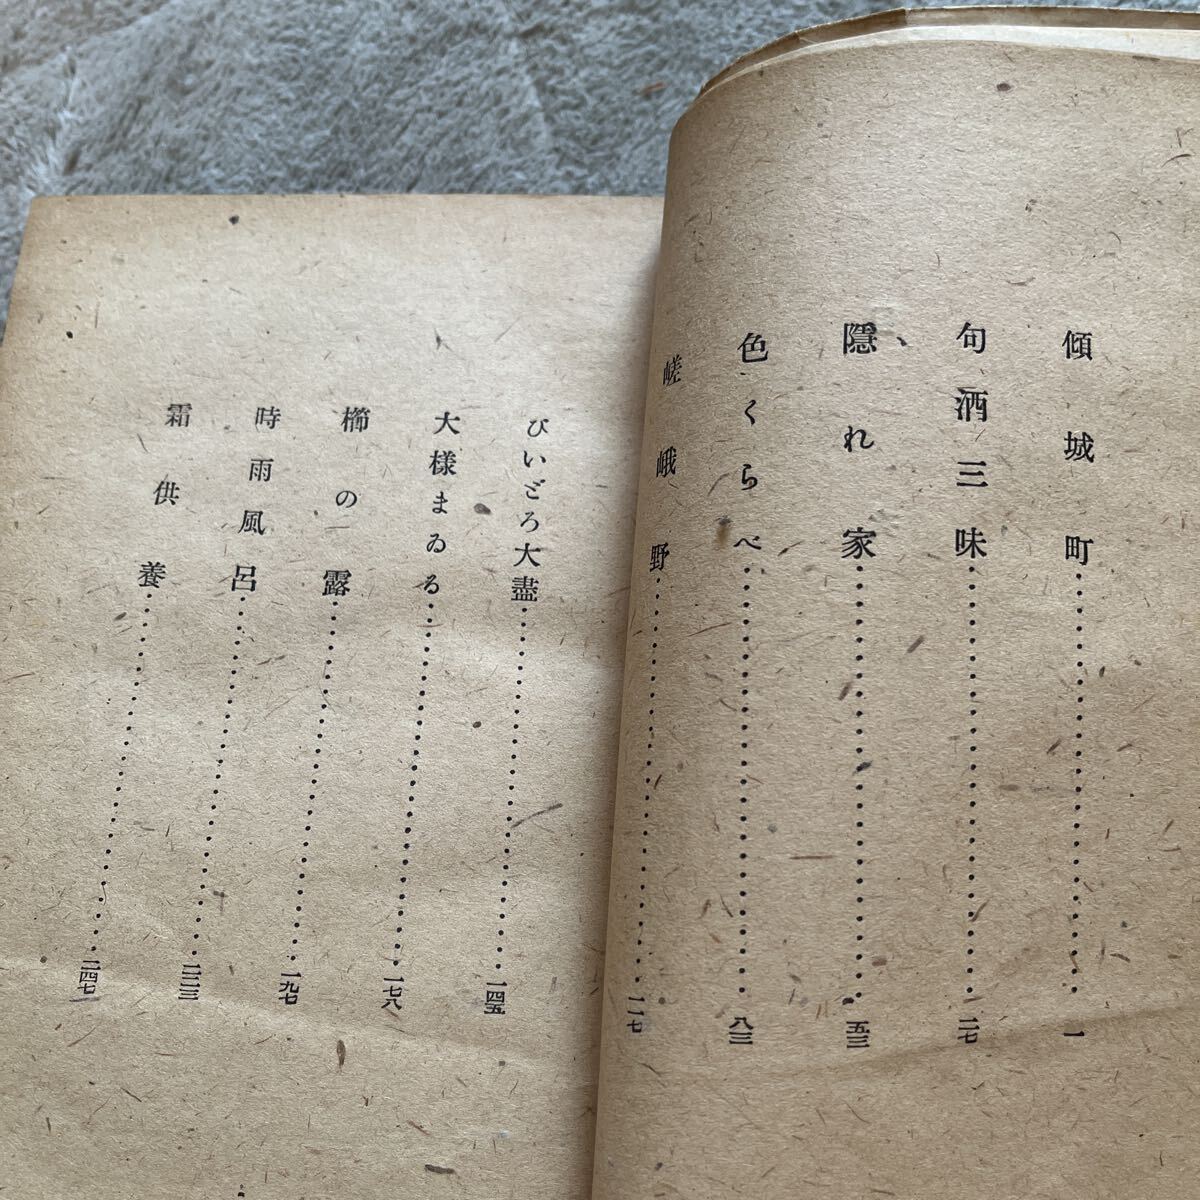 傾城町……一
句酒三昧……二七
隱れ家……五三
色くらべ……八三
嵯峨野……一一七
びいどろ大盡……一四五
大様まゐる……一七八
櫛の露……一九七
時雨風呂……二二三
霜供養……二四七